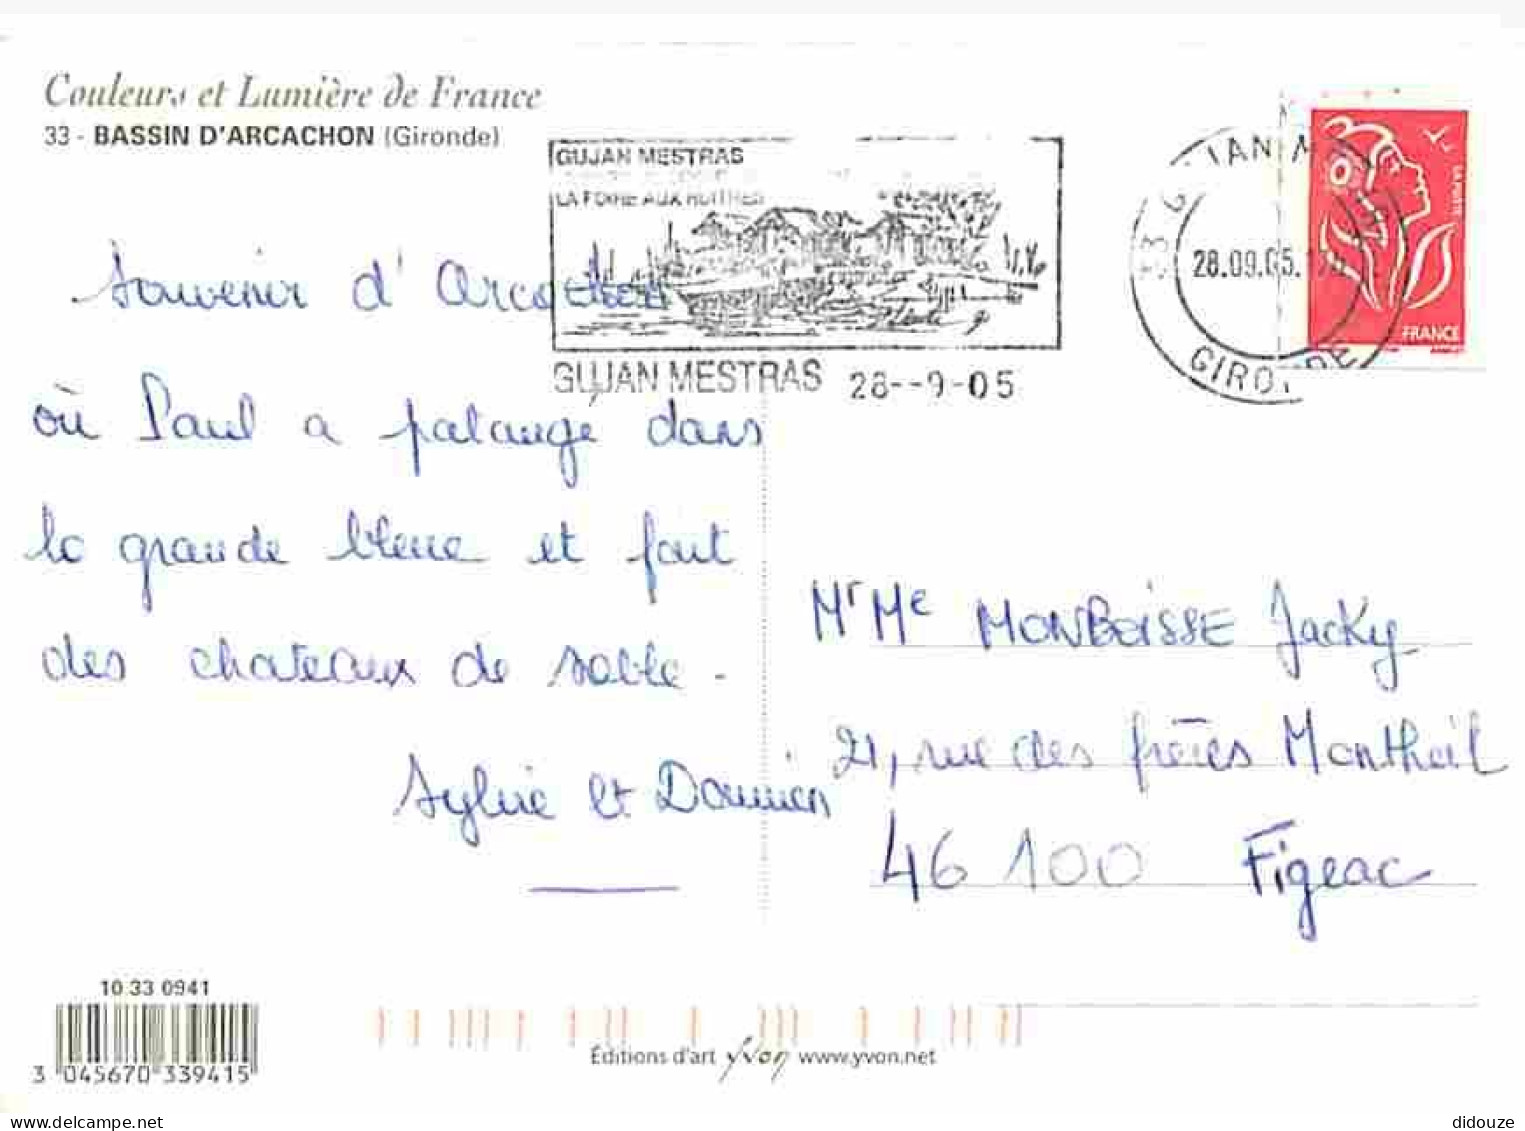 Couleurs et Lumière de France
33 - BASSIN D'ARCACHON (Gironde)
GUJAN MESTRAS
LA FOIRE AUX HUITRES
GUJAN MESTRAS 28--9-05
28.09.05.
GIRONDE
LA POSTE
FRANCE
Souvenir d'Arcachon
où Paul a pataugé dans
la grande bleue et fait
des chateaux de sable.
Sylvie et Damien
Mr Me MONBOISSE Jacky
21, rue des frères Montheil
46 100 Figeac
10 33 0941
3 045670 339415
Éditions d'art yvon www.yvon.net
delcampe.net
didouze